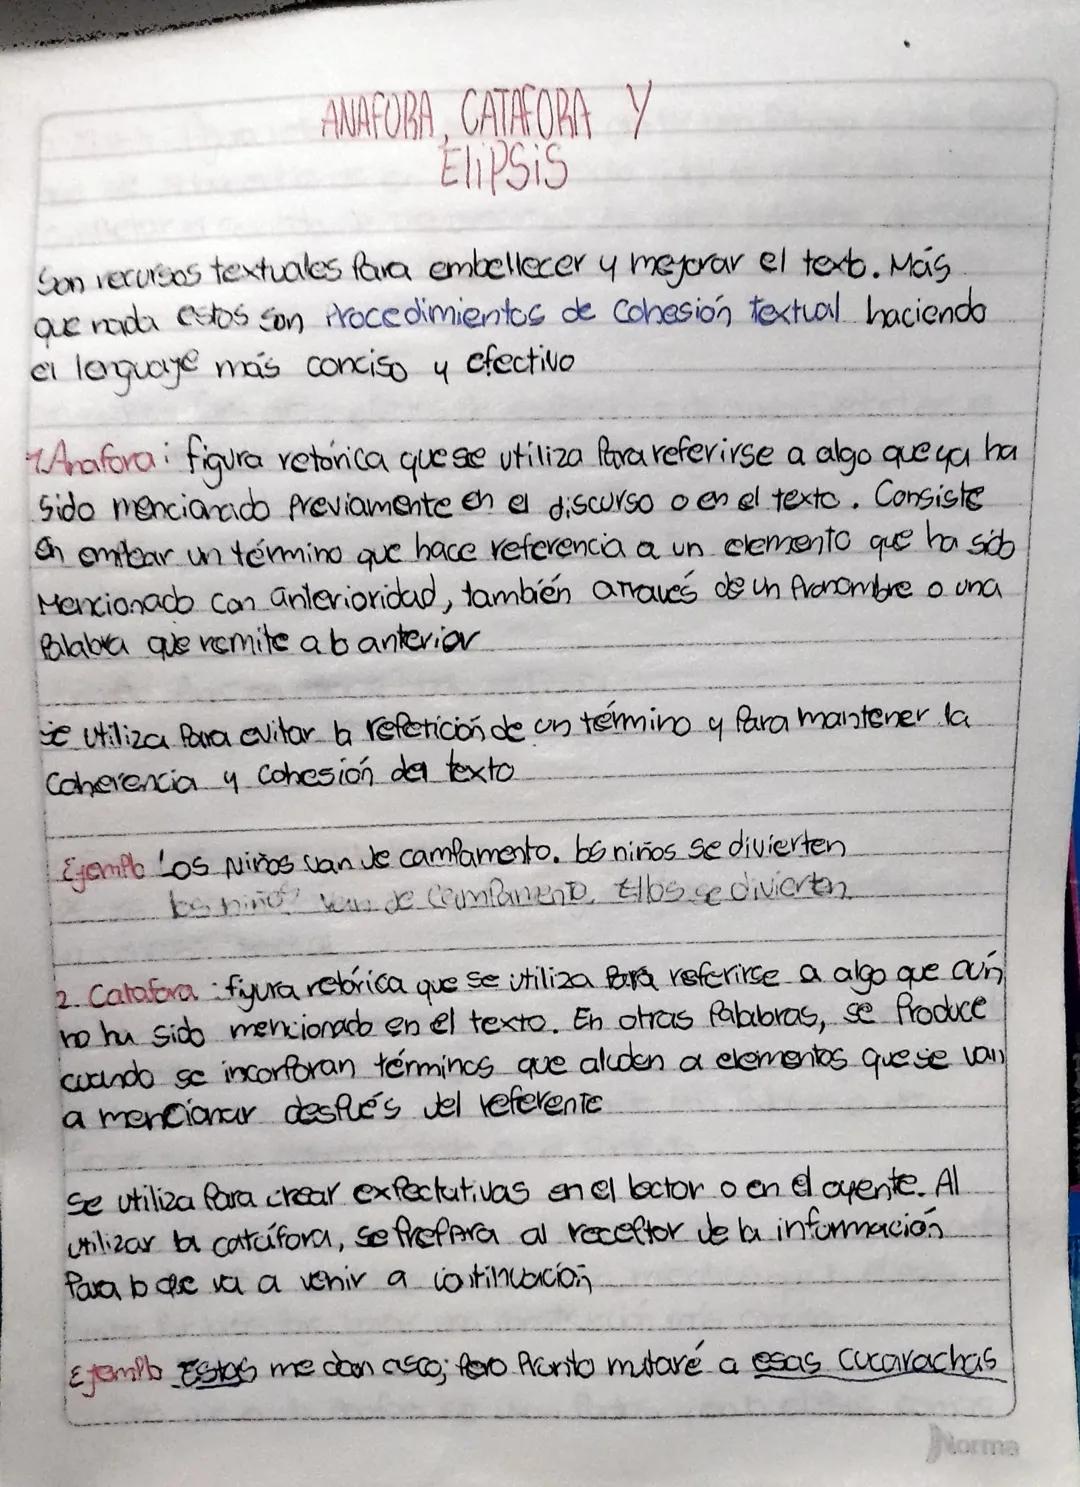 ANAFORA, CATAFORA Y
ElipSis
Son recursos textuales Para embellecer y mejorar el texto. Más
que nada estos son Procedimientos de Cohesión textual haciendo
el lenguaje más conciso y efectivo
1. Anafora: figura retórica que se utiliza Para referirse a algo que ya ha
Sido mencionado Previamente en el discurso o en el texto. Consiste
en emplear un término que hace referencia a un elemento que ha sido
Mencionado con anterioridad, también através de un Pronombre o una
Palabra que remite a lo anterior
Se utiliza Para evitar la repetición de un término y Para mantener la
Coherencia y Cohesión del texto
Ejemplo Los Niños van de campamento. los niños se divierten
los niños van de campamento. Ellos se divierten
2. Catafora: figura retórica que se utiliza Para referirse a algo que aún
no ha sido mencionado en el texto. En otras Palabras, se Produce
cuando se incorporan términos que aluden a elementos que se van
a mencionar después del referente
Se utiliza Para crear expectativas en el lector o en el oyente. Al
utilizar la catáfora, se prepara al receptor de la información
Para lo que va a venir a continuación
Ejemplo Estas me dan asco; Pero Pronto mataré a esas cucarachas
Norma